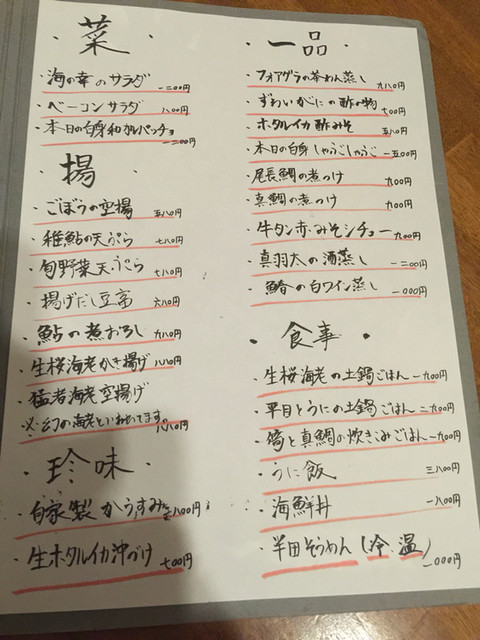 ・菜・
・海の幸のサラダ 一二〇〇円
・ベーコンサラダ 八〇〇円
・本日の白身和カルパッチョ
一二〇〇円
・揚・
・ごぼうの空揚 五八〇円
・稚鮎の天ぷら 七八〇円
・旬野菜天ぷら 七八〇円
・揚げだし豆腐 六八〇円
・鮎の煮おろし 九八〇円
・生桜海老かき揚げ 八八〇円
・猛者海老空揚げ
※幻の海老といわれてます。
八八〇円
・珍味・
・自家製からすみ 八〇〇円
・生ホタルイカ沖づけ 七〇〇円
・一品・
・フォアグラの茶わん蒸し 九八〇円
・ずわいがにの酢の物 七〇〇円
・ホタルイカ酢みそ 五八〇円
・本日の白身しゃぶしゃぶ 一五〇〇円
・尾長鯛の煮つけ 九〇〇円
・真鯛の煮つけ 九〇〇円
・牛タン赤みそシチュー 九〇〇円
・真羽太の酒蒸し 一二〇〇円
・の白ワイン蒸し 一〇〇〇円
・食事・
・生桜海老の土鍋ごはん 一九〇〇円
・平目とうにの土鍋ごはん 二九〇〇円
・と真鯛の炊きこみごはん 一九〇〇円
・うに飯 三八〇〇円
・海鮮丼 一八〇〇円
・半田そうめん(冷・温)
一〇〇〇円